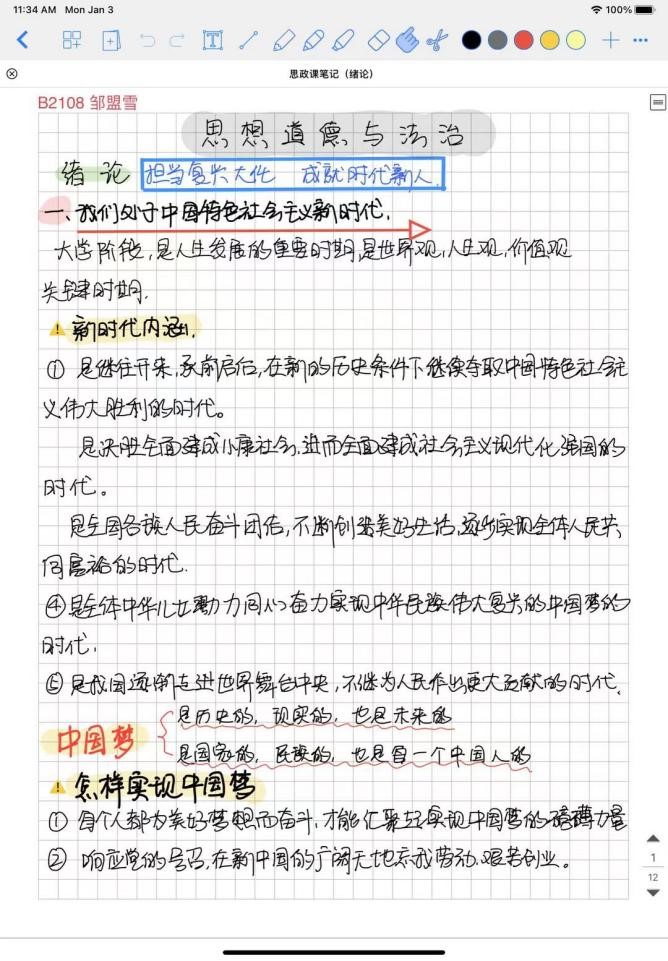 11:34 AM Mon Jan 3
100%
思政课笔记（绪论）
B2108 邹盟雪
思想道德与法治
绪论 担当复兴大任 成就时代新人.
一、我们处于中国特色社会主义新时代.
大学阶段,是人生发展的重要时期,是世界观,人生观,价值观
关键时期.
新时代内涵.
① 是继往开来,承前启后,在新的历史条件下继续夺取中国特色社会主
义伟大胜利的时代。
是决胜全面建成小康社会.进而全面建成社会主义现代化强国的
时代。
是全国各族人民奋斗团结,不断创造美好生活,逐步实现全体人民共
同富裕的时代.
④是全体中华儿女勠力同心奋力实现中华民族伟大复兴的中国梦的
时代.
⑤是我国逐渐走进世界舞台中央,不继为人民作出更大贡献的时代.
中国梦
是历史的, 现实的, 也是未来的
是国家的, 民族的, 也是每一个中国人的
怎样实现中国梦
① 每个人都为美好梦想而奋斗,才能汇聚起实现中国梦的磅礴力量
② 响应党的号召,在新中国的广阔天地忘我劳动.艰苦创业。
1
12